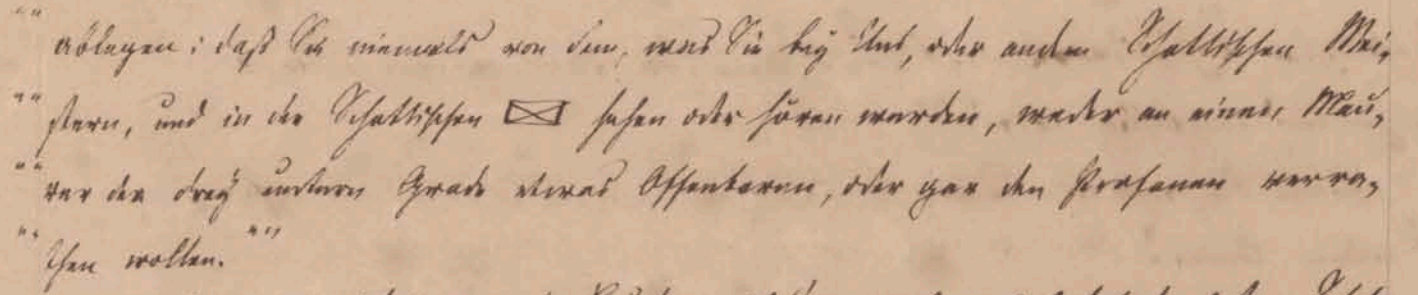 "" ablegen: daß Sie niemals von dem, was Sie bey Uns, oder andern Schottischen Mei-
"" stern, und in der Schottischen sehen oder hören werden, weder an einen Mau-
"" rer der drey untern Grade etwas Offenbaren, oder gar den Profanen verra-
"" then wollen.""